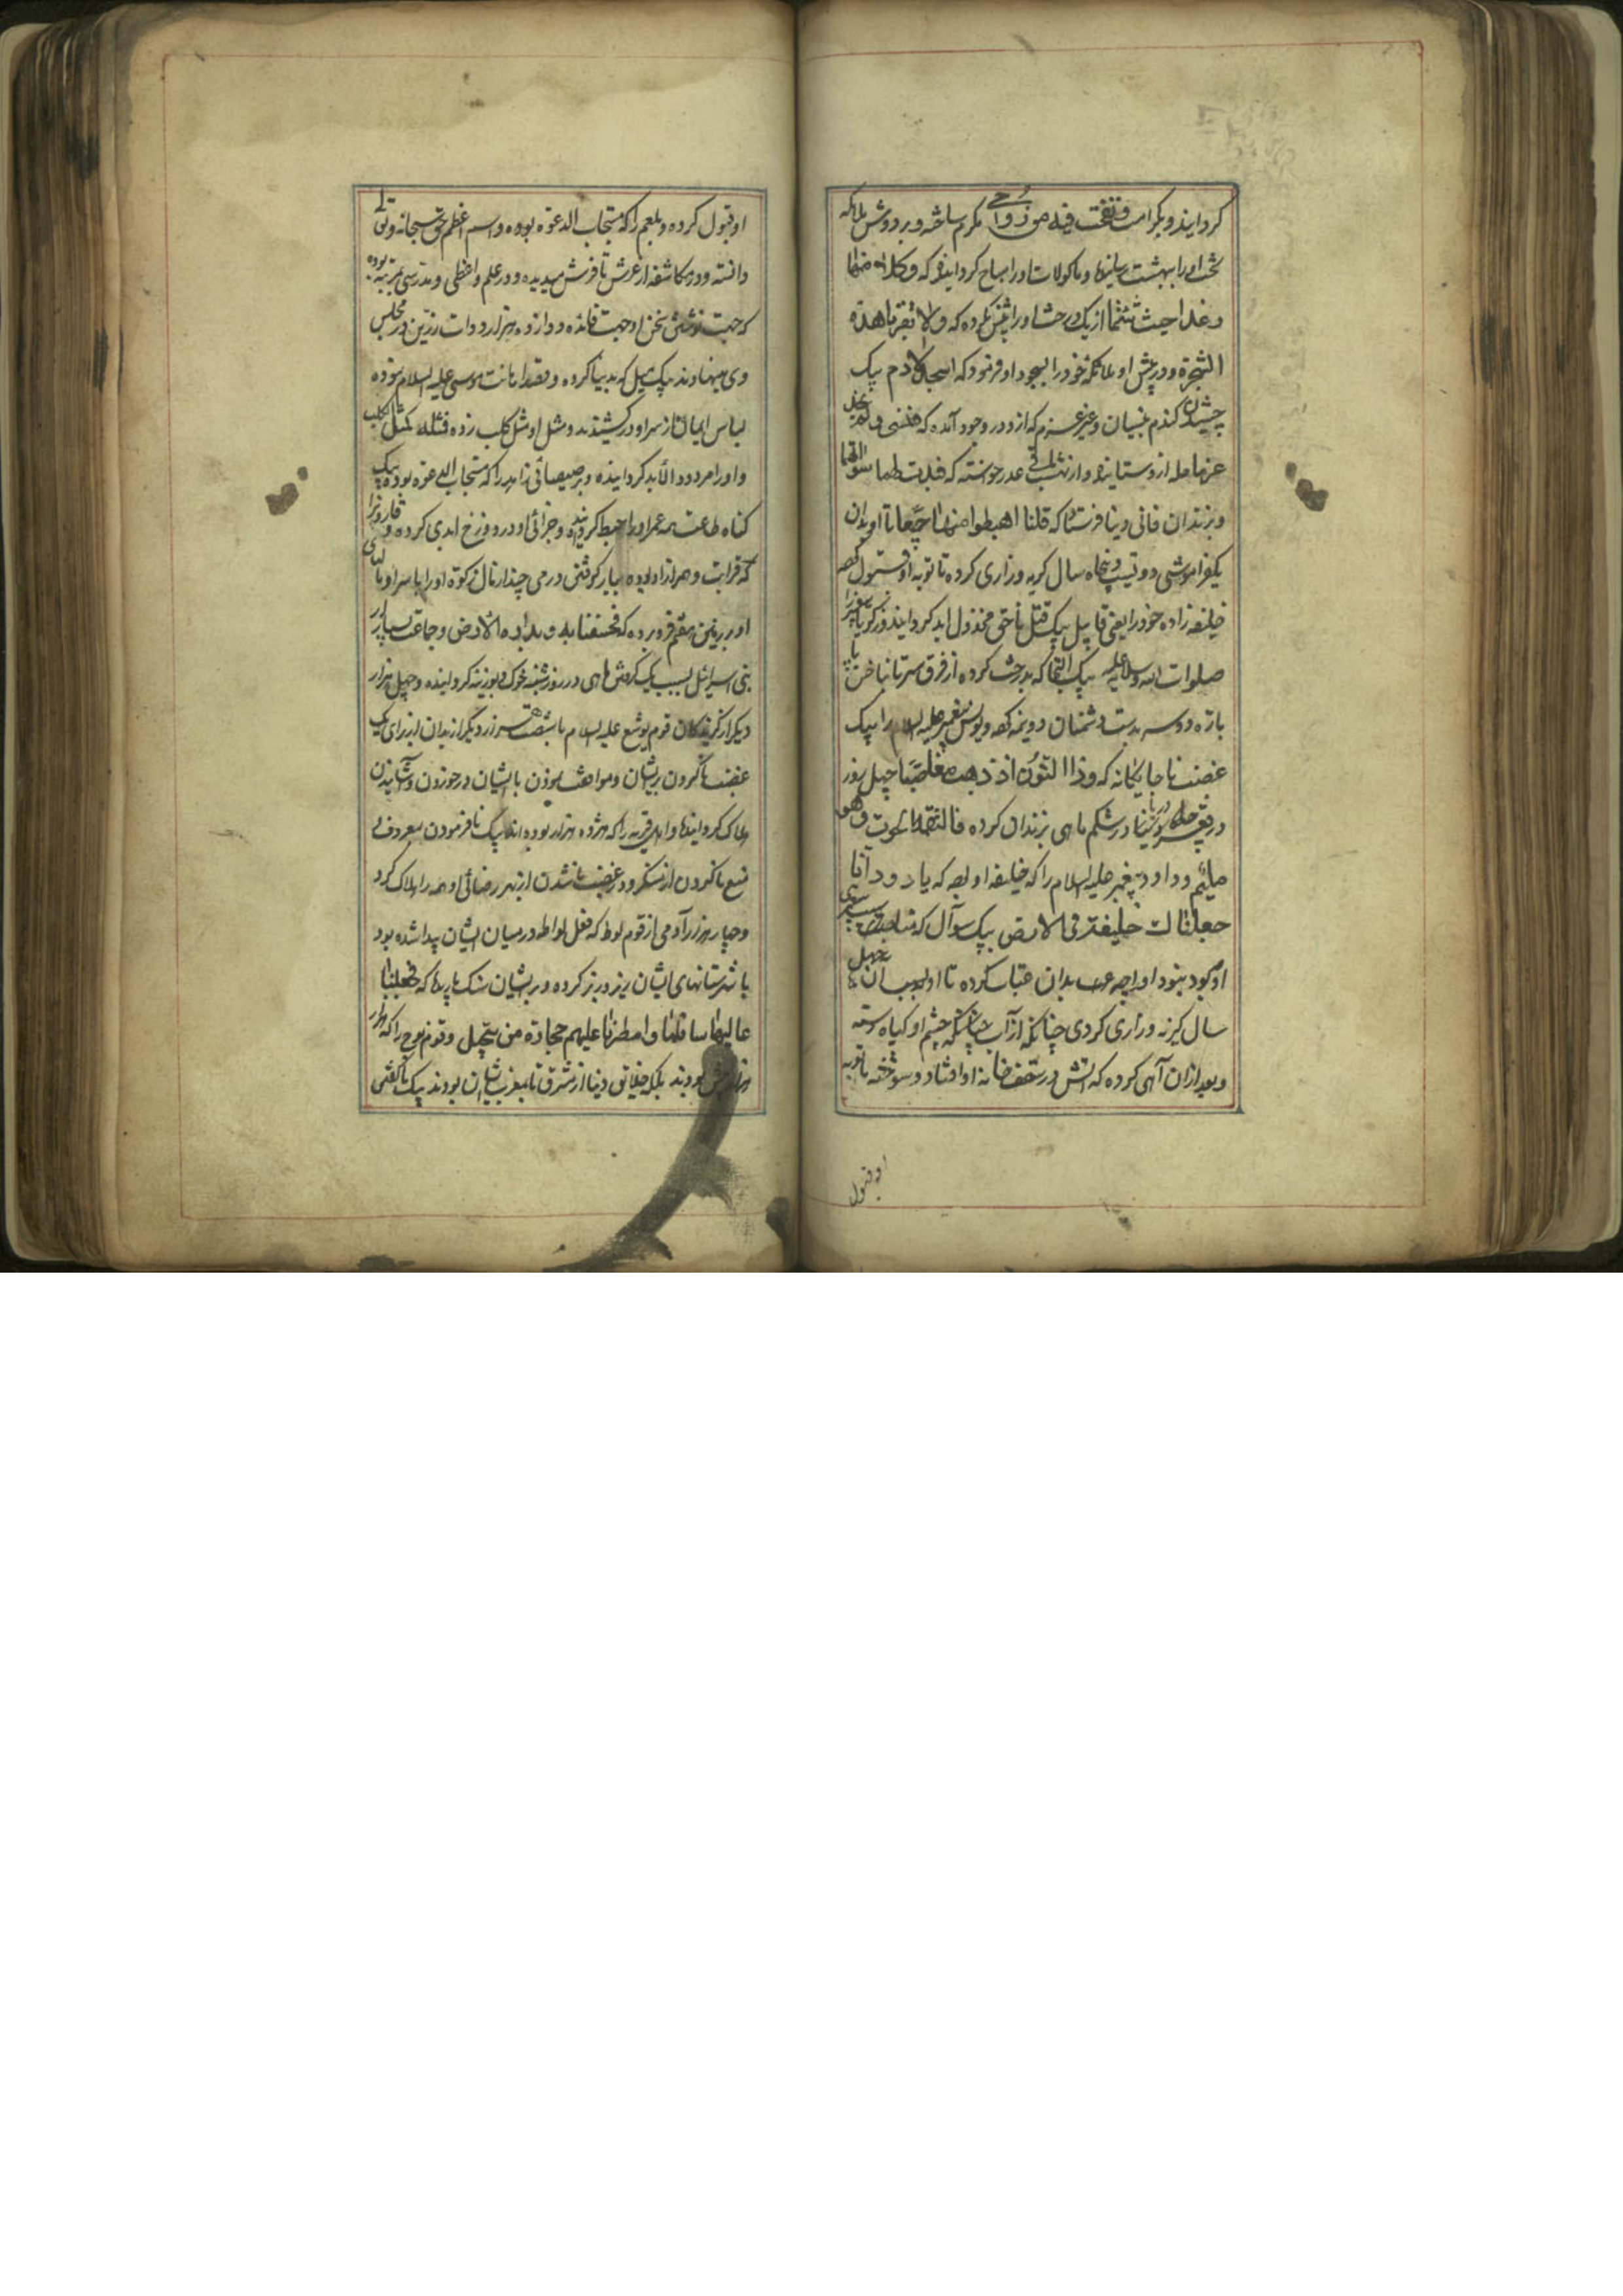 کردانیده و بکرامت و نفخت فیه من روحی مکرم ساخته و بر دوش ملائکه
تخت او را بهشت رسانیده و ماکولات او را مباح کردانیده که وکلا منها
رغدا حیث شئتما از یک درخت او را منع کرده که ولا تقربا هذه
الشجرة و در پیش او ملائکه خود را بسجود او فرمود که اسجدوا لادم بیک
چشیدن کندم بنسیان و غیر عزم که ازو در وجود آمده که فنسی ولم نجد له
عزما حله ازو ستانیده و از تشبث عذر خواسته که فبدت لهما سوآتهما
و بزندان فانی دنیا فرستاده که قلنا اهبطوا منها جمیعا تا او بدان
یکفراموشی دویست و پنجاه سال کریه و زاری کرده تا توبه او قبول کرد
خلیفه زاده خود را یعنی قابیل بیک قتل ناحق مخذول ابد کردانید و زکریا پیغمبر را
صلوات الله و سلامه علیه بیک التجا که بدرخت کرده از فرق سر تا ناخن پا
باره دو سه بدست دشمنان دو نیمه کرد و یونس پیغمبر علیه السلام را بیک
غضب ناجایکانه که وذا النون اذ ذهب مغاضبا چهل روز
در قعر دریا در شکم ماهی بزندان کرده فالتقمه الحوت وهو
ملیم و داود پیغمبر علیه السلام را که خلیفه او بود که یا داود انا
جعلناک خلیفة فی الارض بیک سوآل که
او کرده بود او را بدان عتاب کرده تا او بسبب آن چهل
سال کریه و زاری کردی چنانکه از آب چشم او کیاه رسته
و بعد از آن آهی کرده که آتش در سقف خانه او افتاد و سوخته تا توبه
او قبول
او قبول کرده و بلعم را که مستجاب الدعوة بوده و اسم اعظم حق سبحانه و تعالی
دانسته و در مکاشفه از عرش تا فرش میدیده و در علم و واعظی و مدرسی بمرتبه بوده
که جهت نوشتن سخن او دوازده هزار دوات زرین در مجلس
وی مینهادند بیک میل که بدنیا کرده و قصد اهانت موسی علیه السلام نموده
لباس ایمان از سر او در کشیدند و مثل او مثل کلب زده فمثله کمثل الکلب
و او را مردود الابد کردانیده و برصیصائی زاهد را که مستجاب الدعوة بوده بیک
کناه طاعت همه عمر او را حبط کردانیده و جزائی او در دوزخ ابدی کرده و قارون را
که قرابت و همزاد او بوده بباز کرفتن درمی چند از مال زکوة او را با سر او با
او بر زمین هفتم فرو برده که فخسفنا به و بداره الارض و جماعت بسیار از
بنی اسرائیل بسبب یک کرفتن ماهی در روز شنبه خوک و بوزینه کردانیده و چهل هزار
دیکر از کزیدکان قوم یوشع علیه السلام با شصت هزار دیکر از بدان از برای یک
غضب ناکردن بریشان و موافقت نمودن با ایشان در خوردن و آشامیدن
هلاک کردانیده و اهل قریه را که هژده هزار بوده اند بیک نافرمودن بمعروف
منع ناکردن از منکر و در غضب ناشدن از بهر رضائی او همه را هلاک کرد
و چهار هزار آدمی از قوم لوط که فعل لواطه در میان ایشان پیدا شده بود
با شهرستانهای ایشان زیر و زبر کرده و بر ایشان سنک بارید که فجعلنا
عالیها سافلها وامطرنا علیهم حجارة من سجیل و قوم نوح را که هزار
هزار بیش بودند بلکه خلایق دنیا از مشرق تا مغرب ایشان بودند بیک ناکفتن